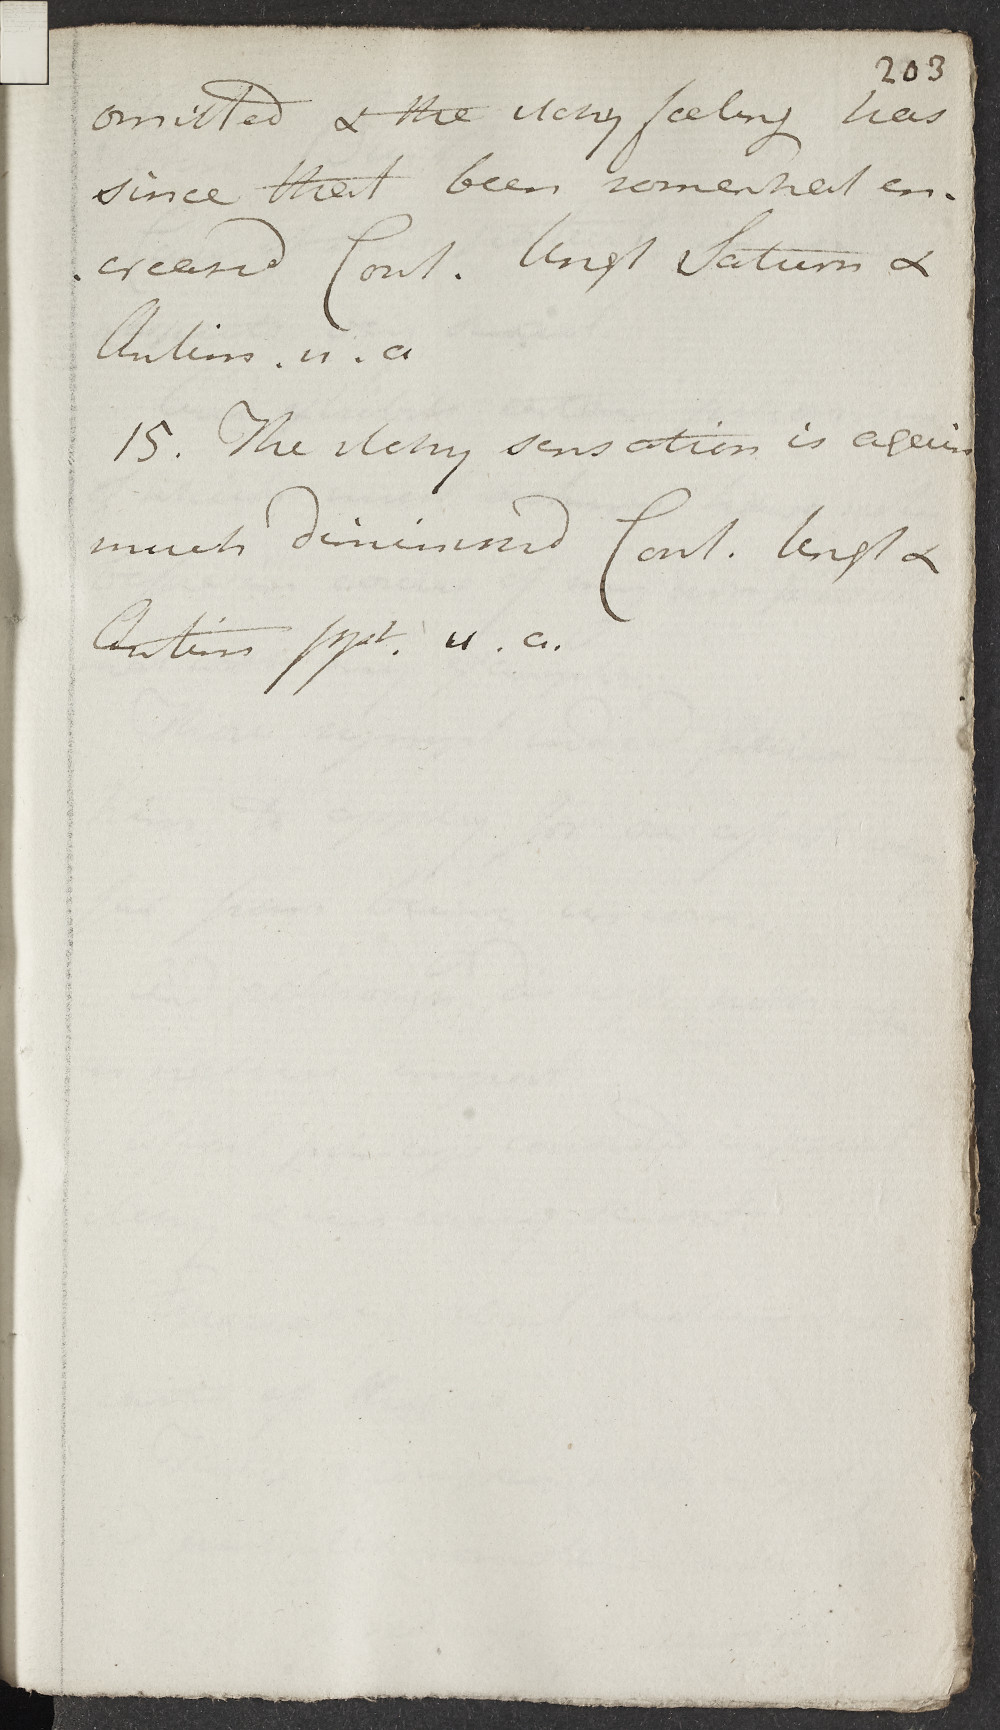 203
omitted & the itchy feeling has
since that been somewhat en-
-creased Cont. Ungt Saturn &
Antim. u. a
15. The itchy sensation is again
much diminished Cont. Ungt &
Antim ppt. u. a.